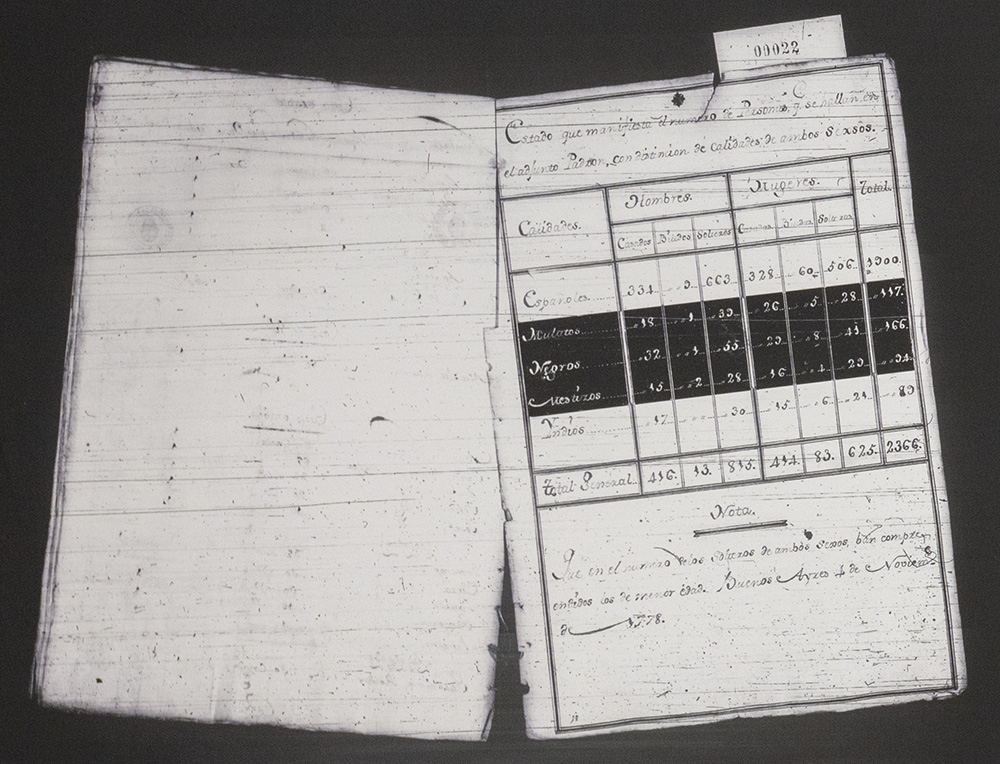 00022
Estado que manifiesta el numero de Personas, q. se hallan en
el adjunto Padron, con distincion de Calidades de ambos Sexsos.
Calidades. Hombres. Mugeres. Total.
Casados Biudos Solteros Casadas Biudas Solteras
Españoles 334 9 663 328 60 506 1900
Mulatos 18 1 39 26 5 28 117
Negros 32 1 55 29 8 41 166
Mestizos 15 2 28 16 4 29 94
Yndios 17 30 15 6 21 89
Total General 416. 13. 815. 414. 83. 625. 2366.
Nota.
Que en el numero delos Solteros de ambos Sexos, ban compre-
endidos los de menor edad. Buenos Ayres 4 de Noviem.
de 1778.